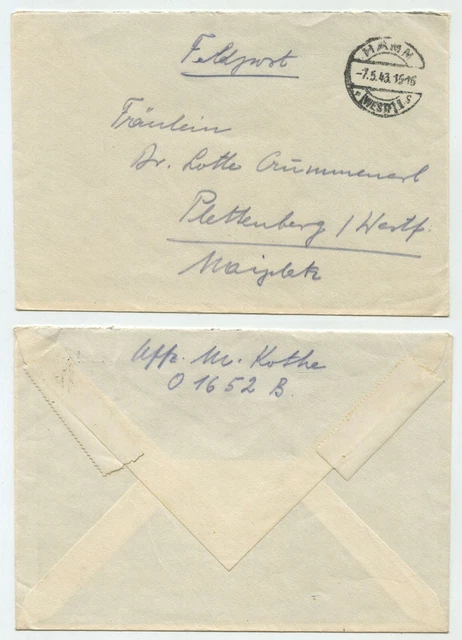 Feldpost
HAMM
-7.5.43.15-16
(WESTF) 1 s
Fräulein
Dr. Lotte Crummenerl
Plettenberg / Westf.
Maiplatz
Uffz. M. Kothe
O 1652 B.